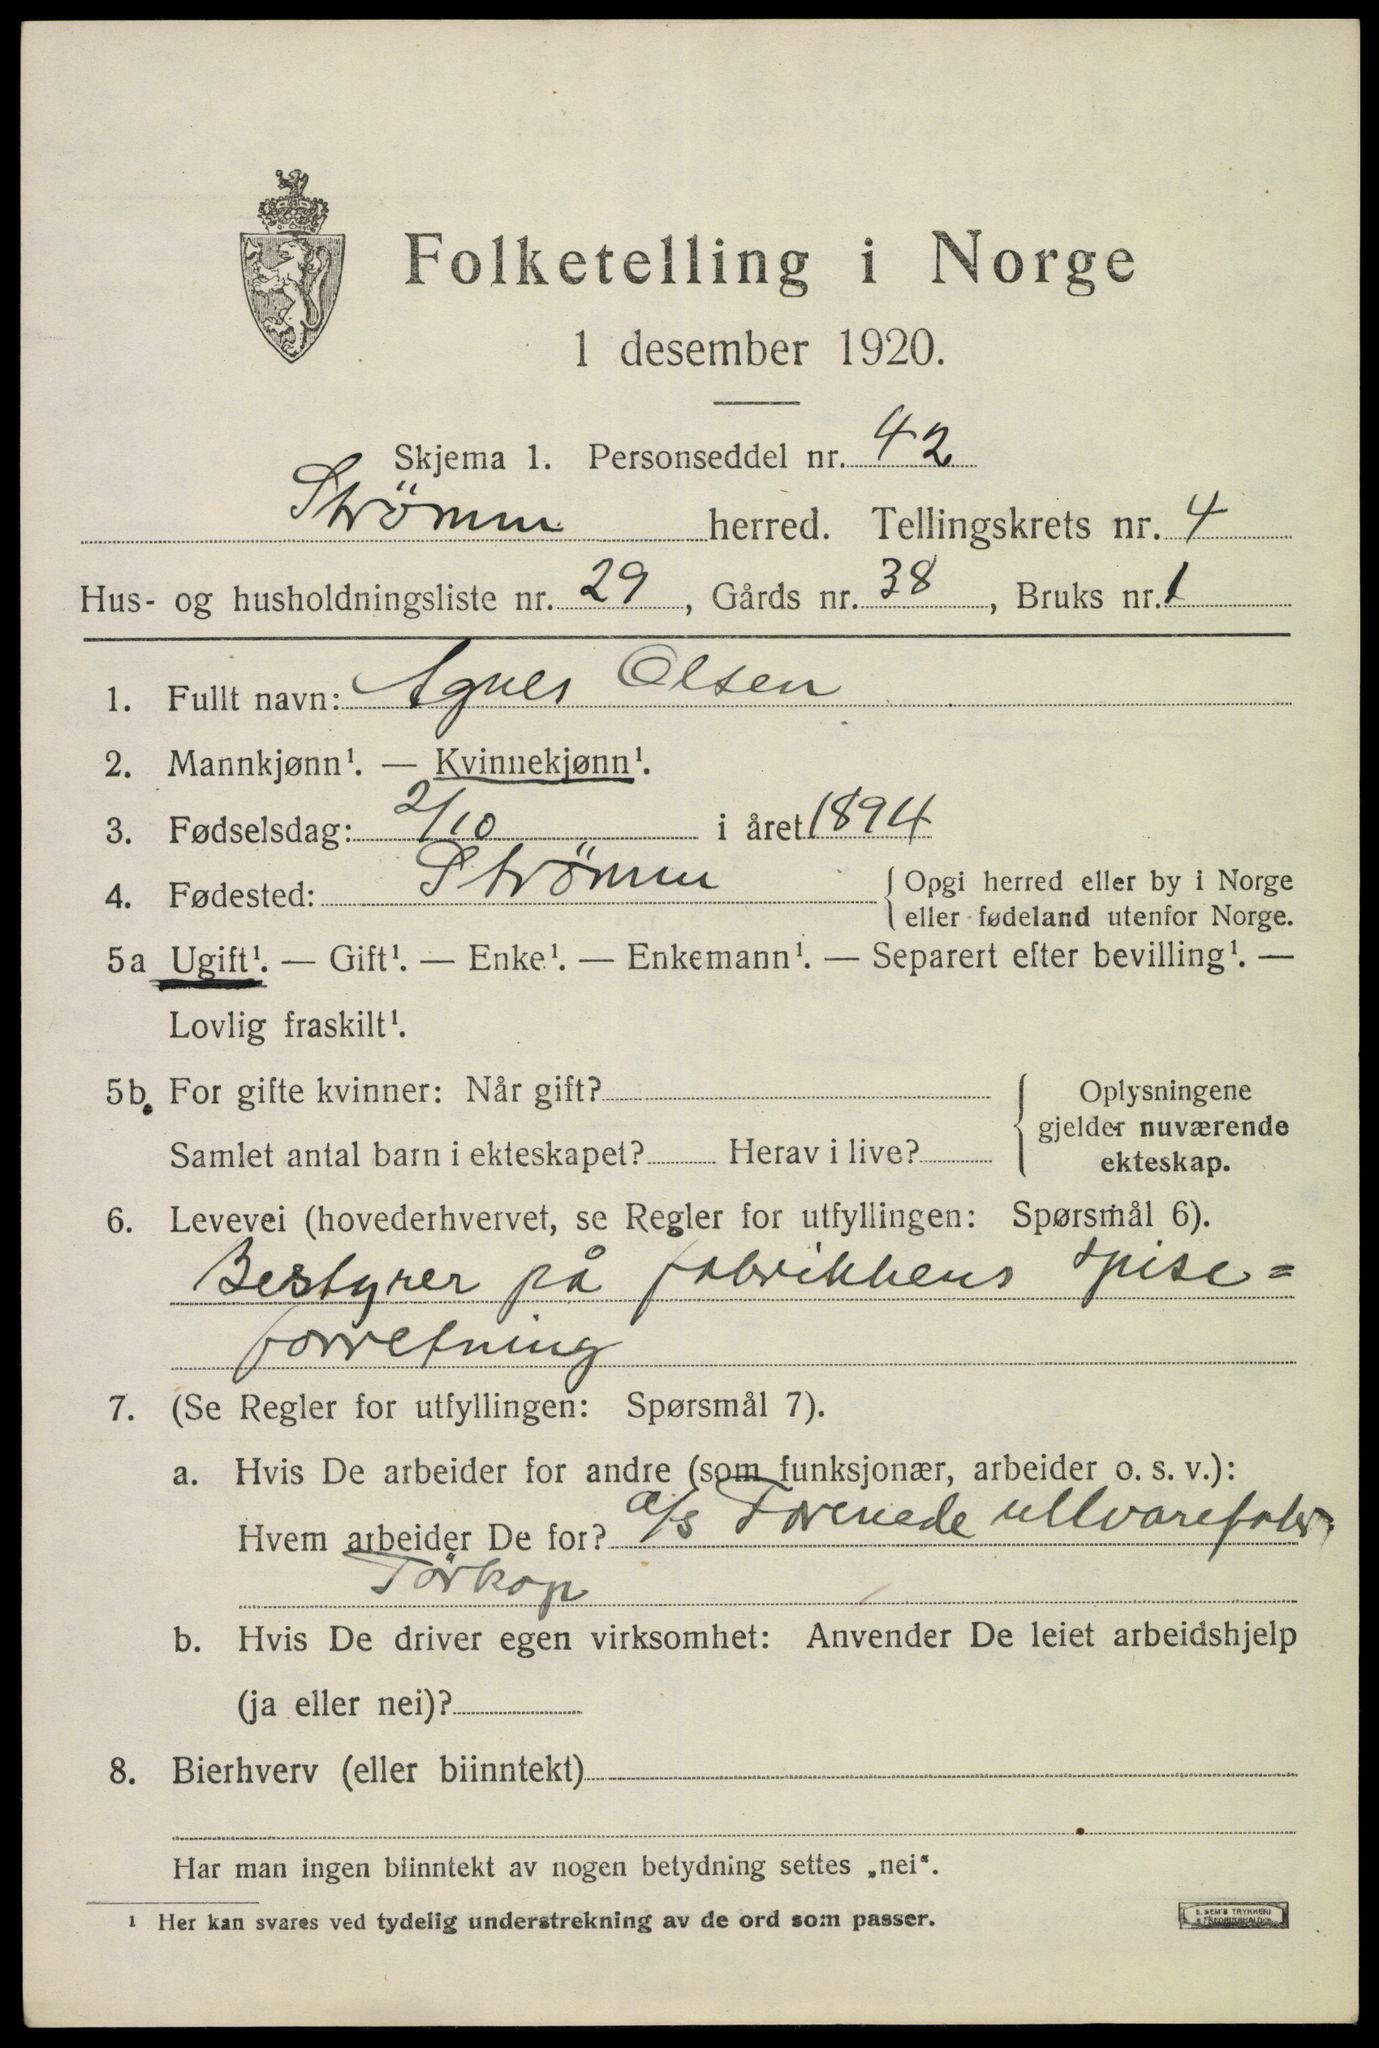 Folketelling i Norge
1 desember 1920.
Skjema 1. Personseddel nr. 42
Strömm herred. Tellingskrets nr. 4
Hus- og husholdningsliste nr. 29, Gårds nr. 38, Bruks nr. 1
1. Fullt navn: Agnes Olsen
2. Mannkjønn¹. — Kvinnekjønn¹.
3. Fødselsdag: 2/10 i året 1894
4. Fødested: Strömm { Opgi herred eller by i Norge
eller fødeland utenfor Norge.
5a Ugift¹. — Gift¹. — Enke¹. — Enkemann¹. — Separert efter bevilling¹. —
Lovlig fraskilt¹.
5b. For gifte kvinner: Når gift?
Samlet antal barn i ekteskapet? Herav i live?
{ Oplysningene
gjelder nuværende
ekteskap.
6. Levevei (hovederhvervet, se Regler for utfyllingen: Spørsmål 6).
Bestyrer på fabrikkens spise=
forretning
7. (Se Regler for utfyllingen: Spørsmål 7).
a. Hvis De arbeider for andre (som funksjonær, arbeider o. s. v.):
Hvem arbeider De for? a/s Forenede ullvarefabr.
Törkop
b. Hvis De driver egen virksomhet: Anvender De leiet arbeidshjelp
(ja eller nei)?
8. Bierhverv (eller biinntekt)
Har man ingen biinntekt av nogen betydning settes „nei“.
¹ Her kan svares ved tydelig understrekning av de ord som passer.
E. SEM'S TRYKKERI
FREDRIKSHALD